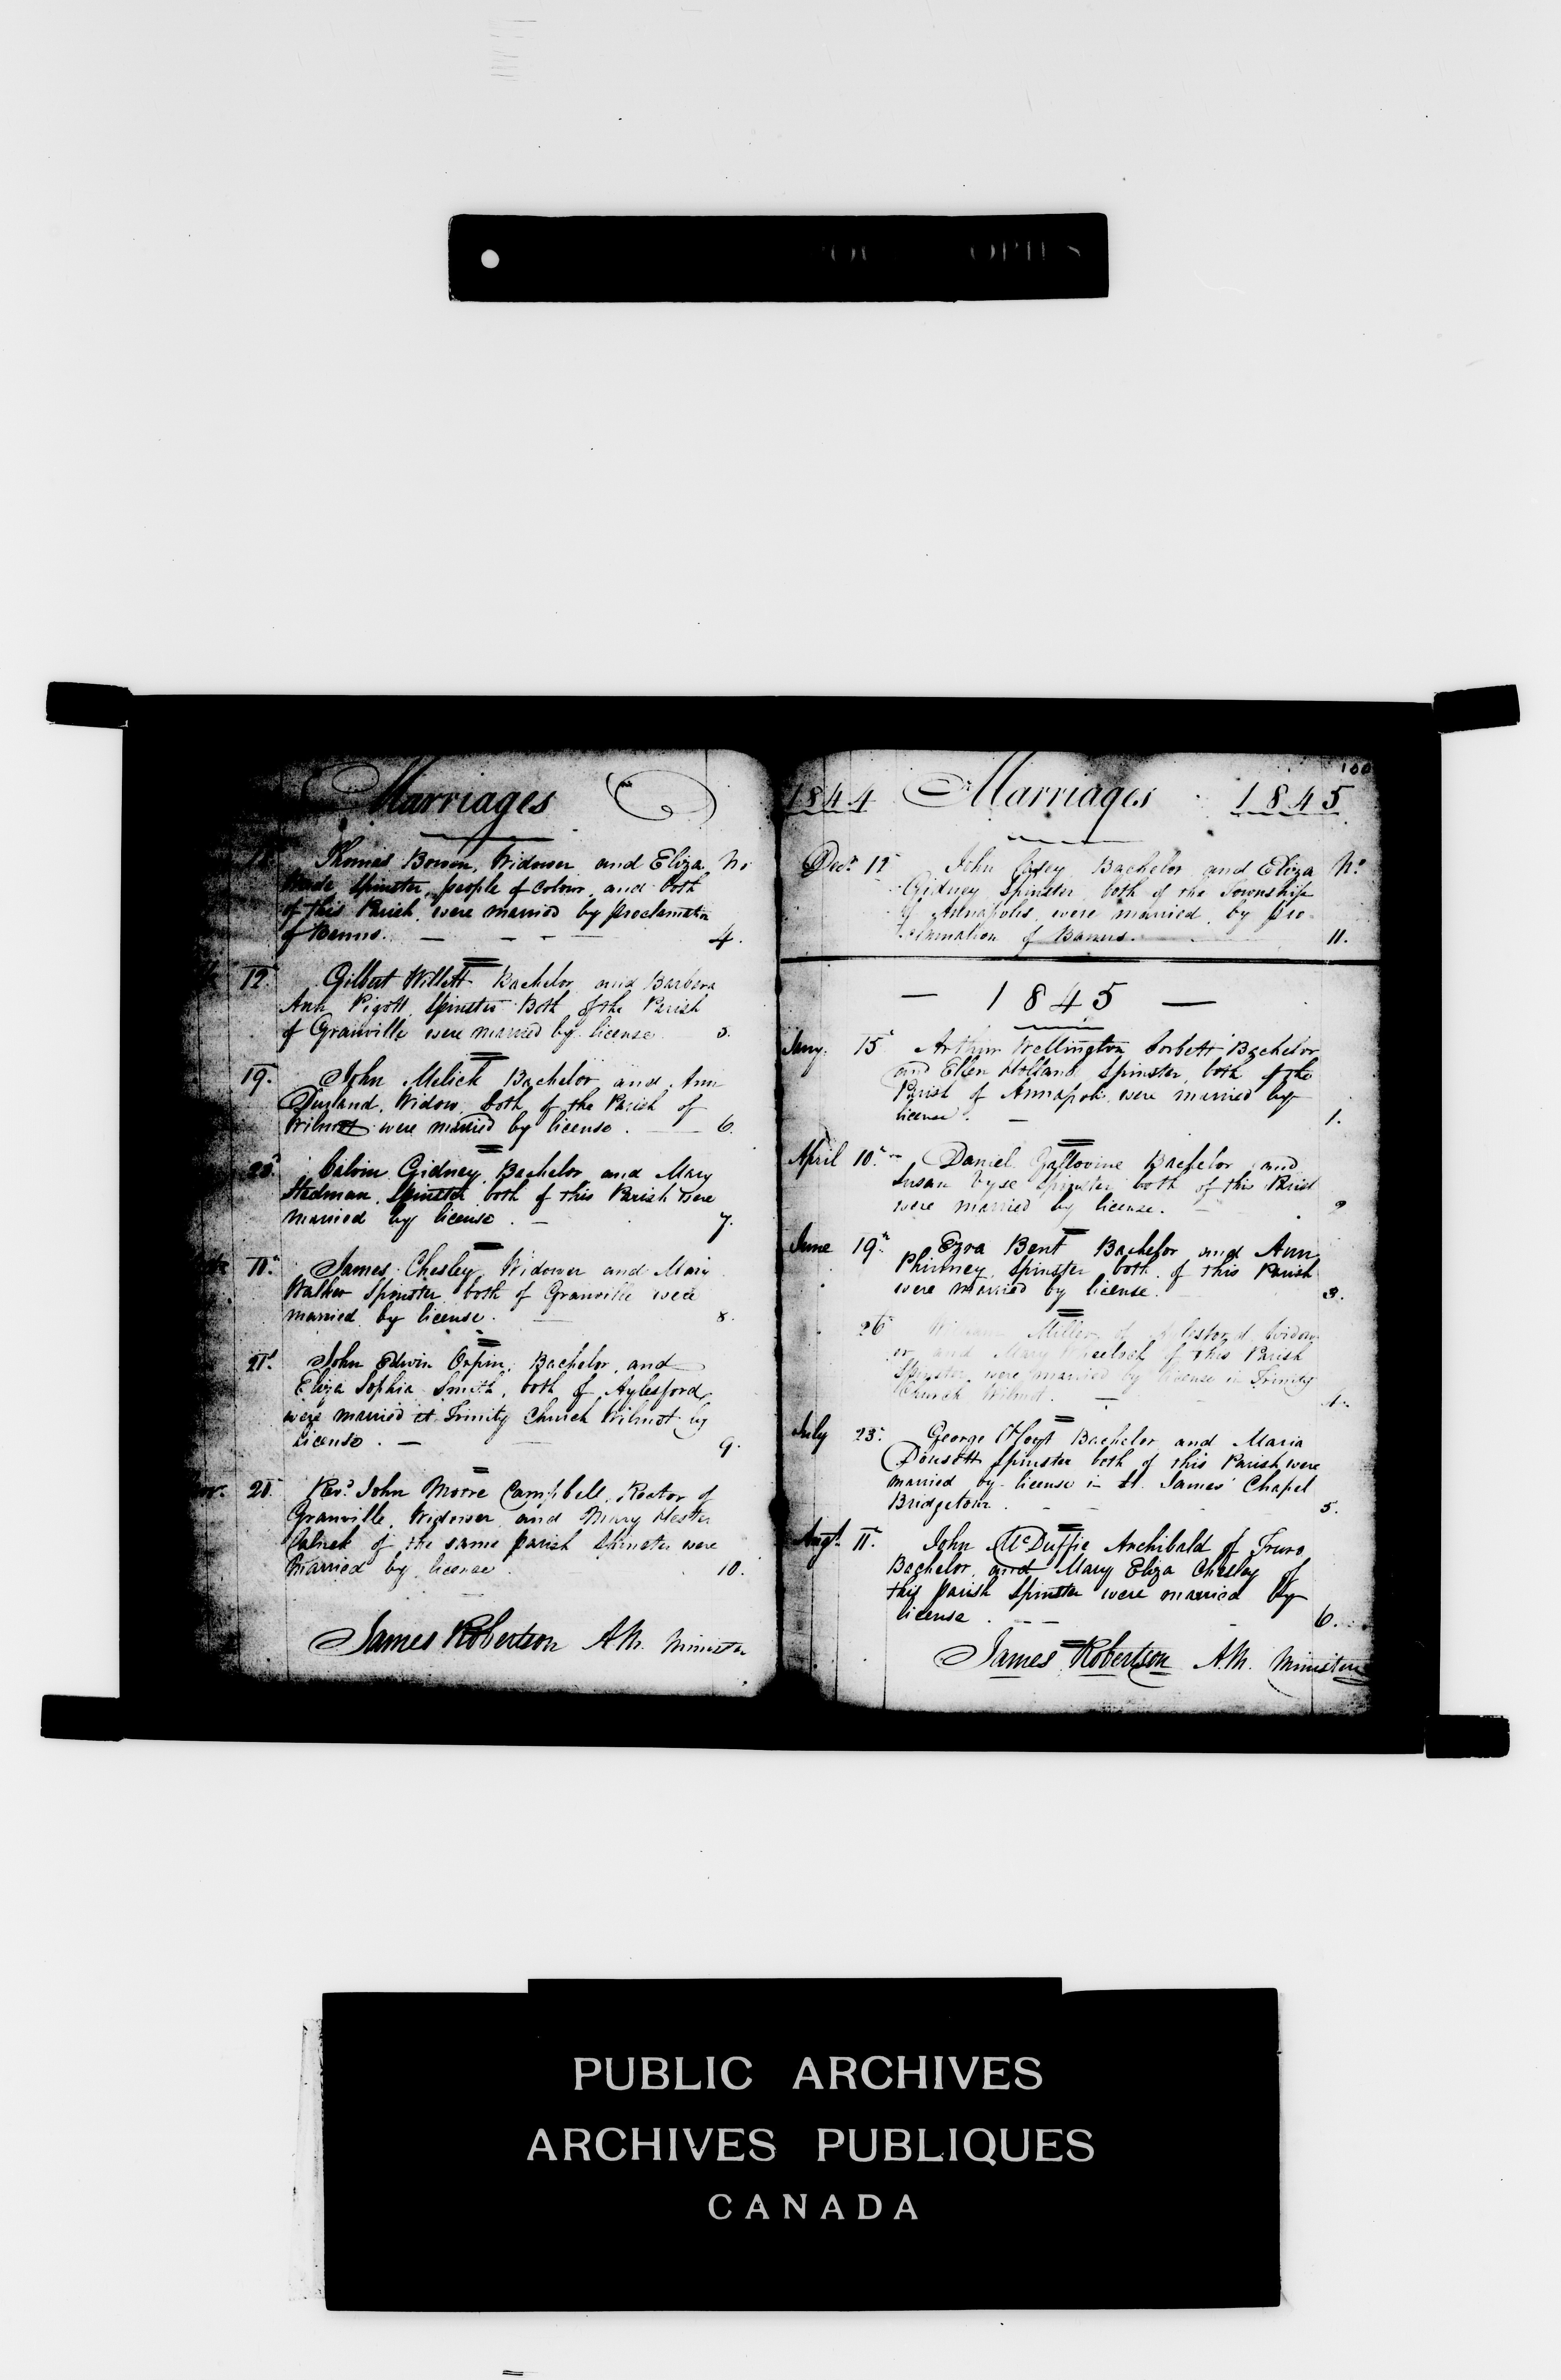 Marriages
Thomas Bowen, Widower and Eliza No
Wade Spinster, people of Colour, and both
of this Parish, were married by proclamation
of Banns. 4.
12. Gilbert Willett Bachelor and Barbara
Ann Pigott, Spinster Both of the Parish
of Granville were married by license 5.
19. John Melick Bachelor and Ann
Durland, Widow both of the Parish of
Wilmot were married by license. 6.
Calvin Gidney, Bachelor and Mary
Stedman, Spinster both of this Parish were
married by license. 7.
11. James Chesley, Widower and Mary
Walker Spinster, both of Granville were
married by license. 8.
21. John Edwin Orpin, Bachelor, and
Eliza Sophia Smith, both of Aylesford,
were married at Trinity Church Wilmot by
License. 9.
Revd. John Moore Campbell, Rector of
Granville, Widower and Mary Hester
of the same parish Spinster were
married by license. 10.
James Robertson A.M. Minister
100
1844 Marriages 1845
Decr. 12 John Bachelor and Eliza No
Gidney Spinster, both of the Township
of Annapolis, were married, by pro-
clamation of Banns. 11.
1845
Jany. 15 Arthur Wellington Corbett Bachelor
and Ellen Holland Spinster, both of the
Parish of Annapolis were married by
license. 1.
April 10. Daniel Bachelor and
Susan Spinster both of this Parish
were married by license. 2
June 19. Ezra Bent Bachelor and Ann
Phinney, Spinster both of this Parish
were married by license. 3.
26 Miller of Widow
er and Mary Wheelock of this Parish
Spinster, were married by license in Trinity
Church Wilmot. 4.
July 23. George Hoyt Bachelor and Maria
Spinster both of this Parish were
married by license in St. James' Chapel
Bridgetown. 5.
Augt. 11. John McDuffie Archibald of Truro
Bachelor, and Mary Eliza Chesley of
this parish Spinster were married by
license. 6.
James Robertson A.M. Minister
PUBLIC ARCHIVES
ARCHIVES PUBLIQUES
CANADA